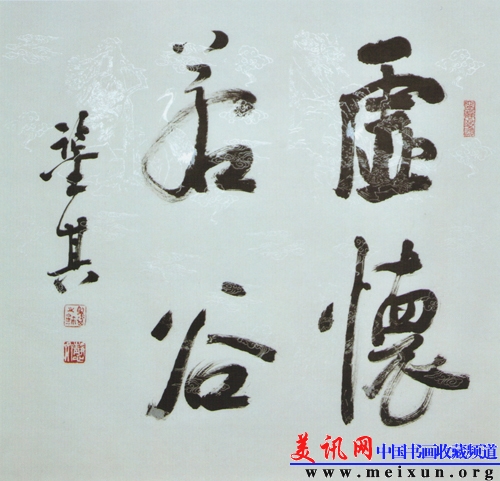 虛懷
若谷
其
美讯网 中国书画收藏频道
www.meixun.org